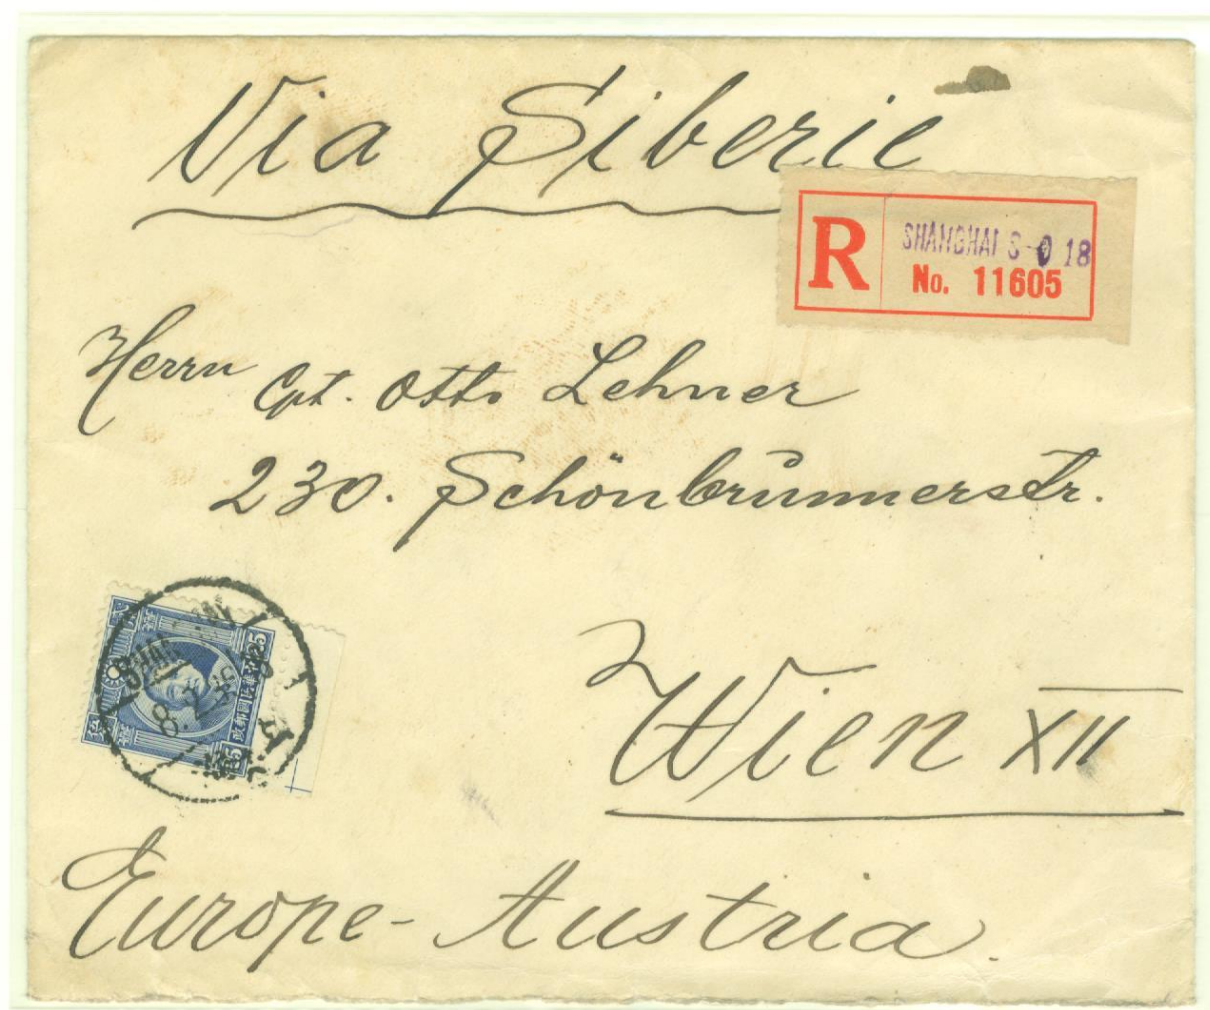 Via Siberie
R
SHANGHAI S-O 18
No. 11605
Herrn Cpt. Otto Lehner
230. Schönbrunnerstr.
25
SHANGHAI
25
Wien XII
Europe - Austria.